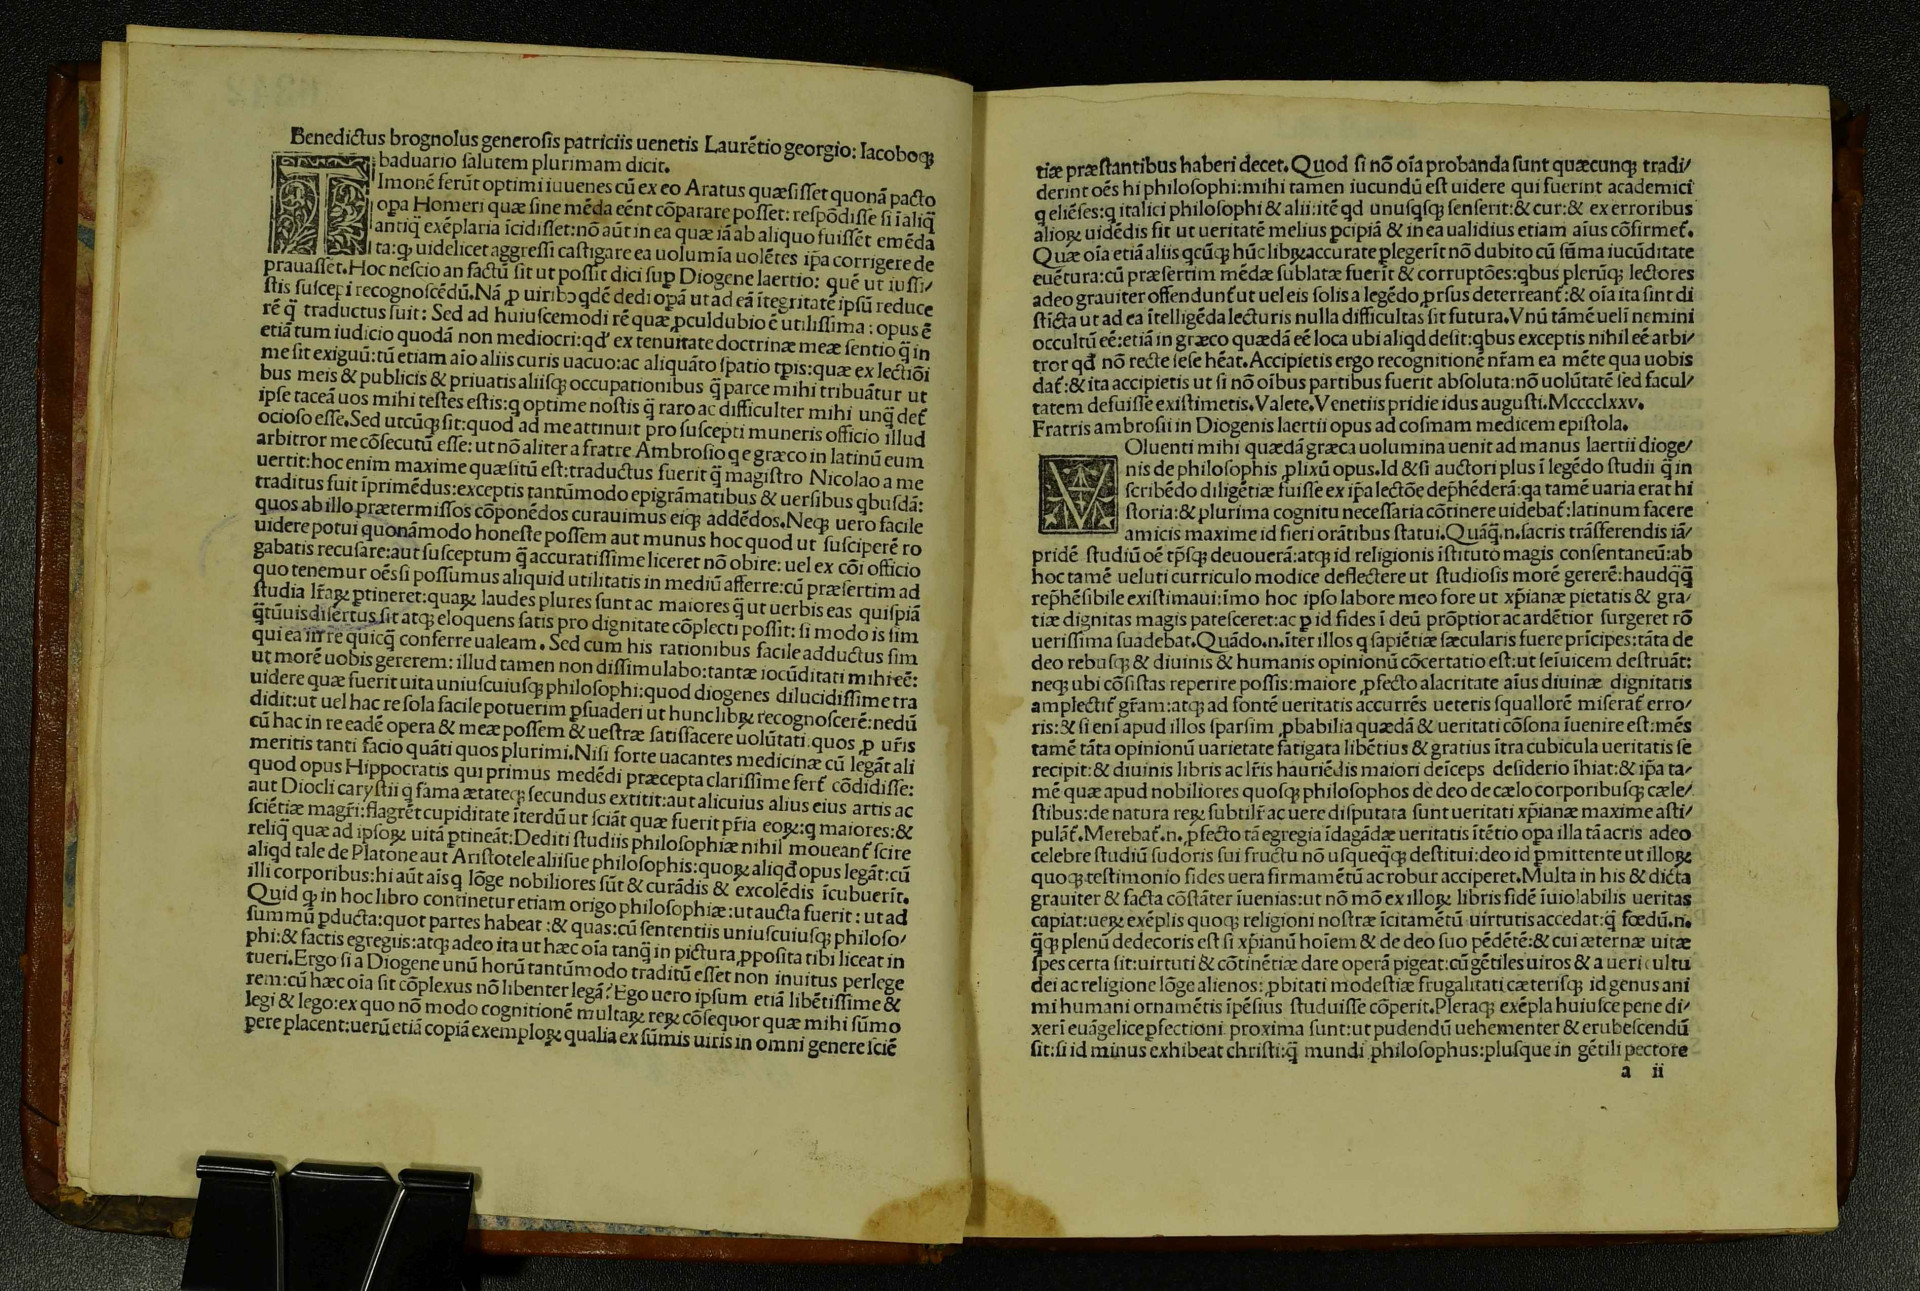 Benedictus brognolus generosis patriciis uenetis Laurētio georgio: Iacoboqꝫ
baduario salutem plurimam dicit.
TImonē ferūt optimi iuuenes cū ex eo Aratus quæsisset quonā pacto
opa Homeri quæ sine mēda eēnt cōparare posset: respōdisse si ī aliq̄
antiq̄ exēplaria īcidisset: nō aūt in ea quæ iā ab aliquo fuissēt emēda
ta: q uidelicet aggressi castigare ea uolumia uolētes ip̄a corrigere de
prauasset. Hoc nescio an factū sit ut possit dici sup̱ Diogene laertio: quē ut iussi/
stis suscepi recognoscēdū. Nā ꝓ uiribꝰ qdē dedi opā ut ad eā ītegritatē ipsū reduce
rē q̄ traductus fuit: Sed ad huiuscemodi rē quæ ꝓculdubio ē utilissima: opus ē
etiā tum iudicio quodā non mediocri: qd' ex tenuitate doctrinæ meæ sentio q̄ in
me sit exiguū: tū etiam aīo aliis curis uacuo: ac aliquāto spatio tp̄is: quæ ex lectiōi
bus meis & publicis & priuatis aliisqꝫ occupationibus q̄ parce mihi tribuātur ut
ipse taceā uos mihi testes estis: q optime nostis q̄ raro ac difficulter mihi unq̄ det̄
ocioso esse. Sed utcūqꝫ sit: quod ad me attinuit pro suscepti muneris officio illud
arbitror me cōsecutū esse: ut nō aliter a fratre Ambrosio q e græco in latinū eum
uertit: hoc enim maxime quæsitū est: traductus fuerit q̄ magistro Nicolao a me
traditus fuit īprimēdus: exceptis tantūmodo epigrāmatibus & uersibus qbusdā:
quos ab illo prætermissos cōponēdos curauimus eiqꝫ addēdos. Neqꝫ uero facile
uidere potui quonāmodo honeste possem aut munus hoc quod ut susciperē ro
gabatis recusare: aut susceptum q̄ accuratissime liceret nō obire: uel ex cōi officio
quo tenemur oēs si possumus aliquid utilitatis in mediū afferre: cū præsertim ad
studia lr̄aꝝ p̱tineret: quaꝝ laudes plures sunt ac maiores q̄ ut uerbis eas quispiā
q̄tūuis disertus sit atqꝫ eloquens satis pro dignitate cōplecti possit: si modo is sim
qui ea in re quicq̄ conferre ualeam. Sed cum his rationibus facile adductus sim
ut morē uobis gererem: illud tamen non dissimulabo: tantæ iocūditati mihi eē:
uidere quæ fuerit uita uniuscuiusqꝫ philosophi: quod diogenes dilucidissime tra
didit: ut uel hac re sola facile potuerim p̱suaderi ut hunc libꝝ recognoscerē: nedū
cū hac in re eadē opera & meæ possem & uestræ satisfacere uolūtati: quos ꝓ ur̄is
meritis tanti facio quāti quos plurimi. Nisi forte uacantes medicinæ cū legāt ali
quod opus Hippocratis qui primus medēdi præcepta clarissime fert̄ cōdidisse:
aut Diocli carystii q fama ætateqꝫ secundus extitit: aut alicuius alius eius artis ac
sciētiæ magr̄i: flagrēt cupiditate īterdū ut sciāt quæ fuerit pr̄ia eoꝝ: q maiores: &
reliq̄ quæ ad ipsoꝝ uitā p̱tineāt: Dediti studiis philosophiæ nihil moueant̄ scire
aliqd tale de Platone aut Aristotele aliisue philosophis: quoꝝ aliqd̄ opus legāt: cū
illi corporibus: hi aūt aīs q lōge nobiliores sūt & curādis & excolēdis īcubuerīt.
Quid qꝫ in hoc libro continetur etiam origo philosophiæ: ut aucta fuerit: ut ad
summū p̱ducta: quot partes habeat: & quas: cū sententiis uniuscuiusqꝫ philoso/
phi: & factis egregiis: atqꝫ adeo ita ut hæc oīa tanq̄ in pictura ꝓposita tibi liceat in
tueri. Ergo si a Diogene unū horū tantūmodo traditū esset non inuitus perlege
rem: cū hæc oīa sit cōplexus nō libenter legā? Ego uero ipsum etiā libētissime &
legi & lego: ex quo nō modo cognitionē multaꝝ reꝝ cōsequor quæ mihi sūmo
pere placent: uerū etiā copiā exemploꝝ qualia ex sūmis uiris in omni genere sciē
tiæ præstantibus haberi decet. Quod si nō oīa probanda sunt quæcunqꝫ tradi/
derint oēs hi philosophi: mihi tamen iucundū est uidere qui fuerint academici
q eliēses: q italici philosophi & alii: itē qd unusqsqꝫ senserit: & cur: & ex erroribus
alioꝝ uidēdis fit ut ueritatē melius p̱cipiā & in ea ualidius etiam aīus cōfirmet̄.
Quæ oīa etiā aliis qcūqꝫ hūc libꝝ accurate p̱legerīt nō dubito cū sūma iucūditate
euētura: cū præsertim mēdæ sublatæ fuerīt & corruptōes: qbus plerūqꝫ lectores
adeo grauiter offendunt̄ ut uel eis solis a legēdo ꝓrsus deterreant̄: & oīa ita sint di
stīcta ut ad ea ītelligēda lecturis nulla difficultas sit futura. Vnū tāmē uelī nemini
occultū eē: etiā in græco quædā eē loca ubi aliqd desit: qbus exceptis nihil eē arbi/
tror qd̄ nō recte sese hēat. Accipietis ergo recognitionē nr̄am ea mēte qua uobis
dat̄: & ita accipietis ut si nō oībus partibus fuerit absoluta: nō uolūtatē sed facul/
tatem defuisse existimetis. Valete. Venetiis pridie idus augusti. Mcccclxxv.
Fratris ambrosii in Diogenis laertii opus ad cosmam medicem epistola.
VOluenti mihi quædā græca uolumina uenit ad manus laertii dioge/
nis de philosophis ꝓlixū opus. Id & si auctori plus ī legēdo studii q̄ in
scribēdo diligētiæ fuisse ex ip̄a lectōe dep̄hēderā: qa tamē uaria erat hi
storia: & plurima cognitu necessaria cōtinere uidebat̄: latinum facere
amicis maxime id fieri orātibus statui. Quāq̄.n. sacris trāsferendis iā/
pridē studiū oē tp̄sqꝫ deuouerā: atqꝫ id religionis īstituto magis consentaneū: ab
hoc tamē ueluti curriculo modice deflectere ut studiosis morē gererē: haudq̄q̄
rep̄hēsibile existimaui: īmo hoc ipso labore meo fore ut xp̄ianæ pietatis & gra/
tiæ dignitas magis patesceret: ac p̱ id fides ī deū prōptior ac ardētior surgeret rō
uerissima suadebat. Quādo.n. īter illos q sapiētiæ sæcularis fuere prīcipes: tāta de
deo rebusqꝫ & diuinis & humanis opinionū cōcertatio est: ut seīuicem destruāt:
neqꝫ ubi cōsistas reperire possis: maiore ꝓfecto alacritate aīus diuinæ dignitatis
amplectit̄ gr̄am: atqꝫ ad fontē ueritatis accurrēs ueteris squallorē miserat̄ erro/
ris: & si enī apud illos sparsim ꝓbabilia quædā & ueritati cōsona īuenire est: mēs
tamē tāta opinionū uarietate fatigata libētius & gratius ītra cubicula ueritatis se
recipit: & diuinis libris ac lr̄is hauriēdis maiori deīceps desiderio īhiat: & ip̄a ta/
mē quæ apud nobiliores quosqꝫ philosophos de deo de cælo corporibusqꝫ cæle/
stibus: de natura reꝝ subtilr̄ ac uere disputata sunt ueritati xp̄ianæ maxime asti/
pulāt̄. Merebat̄.n. ꝓfecto tā egregia īdagādæ ueritatis ītētio opa illa tā acris adeo
celebre studiū sudoris sui fructu nō usqueq̄qꝫ destitui: deo id p̱mittente ut illoꝝ
quoqꝫ testimonio fides uera firmamētū ac robur acciperet. Multa in his & dicta
grauiter & facta cōstāter iuenias: ut nō mō ex illoꝝ libris fidē īuiolabilis ueritas
capiat: ueꝝ exēplis quoqꝫ religioni nostræ īcitamētū uirtutis accedat: q̄ fœdū.n.
q̄qꝫ plenū dedecoris est si xp̄ianū hoīem & de deo suo pēdētē: & cui æternæ uitæ
spes certa sit: uirtuti & cōtinētiæ dare operā pigeat: cū gētiles uiros & a ueri cultu
dei ac religione lōge alienos: ꝓbitati modestiæ frugalitati cæterisqꝫ id genus ani
mi humani ornamētis īpēsius studuisse cōperit. Pleraqꝫ exēpla huiusce pene di/
xerī euāgelice p̱fectioni proxima sunt: ut pudendū uehementer & erubescendū
sit: si id minus exhibeat christi: q̄ mundi philosophus: plusque in gētili pectore
a ii